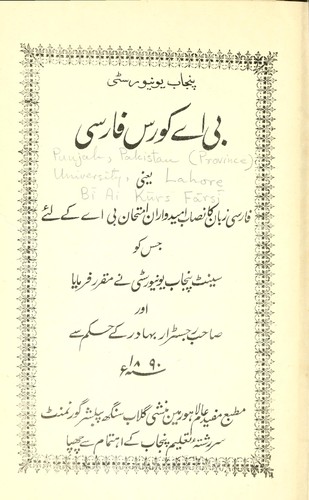 پنجاب یونیورسٹی
بی اے کورس فارسی
Punjab, Pakistan (Province)
University, Lahore
یعنی
Bī Ai Kūrs Fārsī
فارسی زبان کا نصاب امیدواران امتحان بی اے کے لئے
جس کو
سینٹ پنجاب یونیورسٹی نے مقرر فرمایا
اور
صاحب رجسٹرار بہادر کے حکم سے
سنہ ۱۸۹۰ء
مطبع مفید عام لاہور مین منشی گلاب سنگھ پبلشر گورنمنٹ
سررشتہ تعلیم پنجاب کے اہتمام سے چھپا